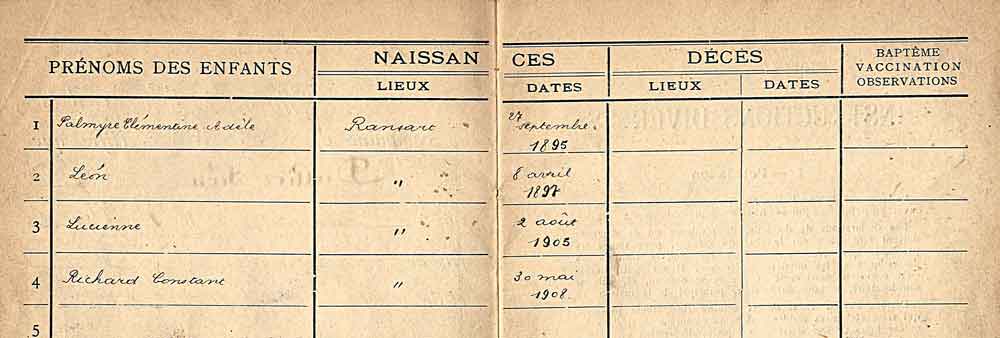 PRÉNOMS DES ENFANTS NAISSANCES DÉCÈS BAPTÊME
VACCINATION
OBSERVATIONS
LIEUX DATES LIEUX DATES
1 Palmyre Clémentine Adèle Ransart 27 septembre
1895
2 Léon " 8 avril
1897
3 Lucienne " 2 août
1905
4 Richard Constant " 30 mai
1908
5